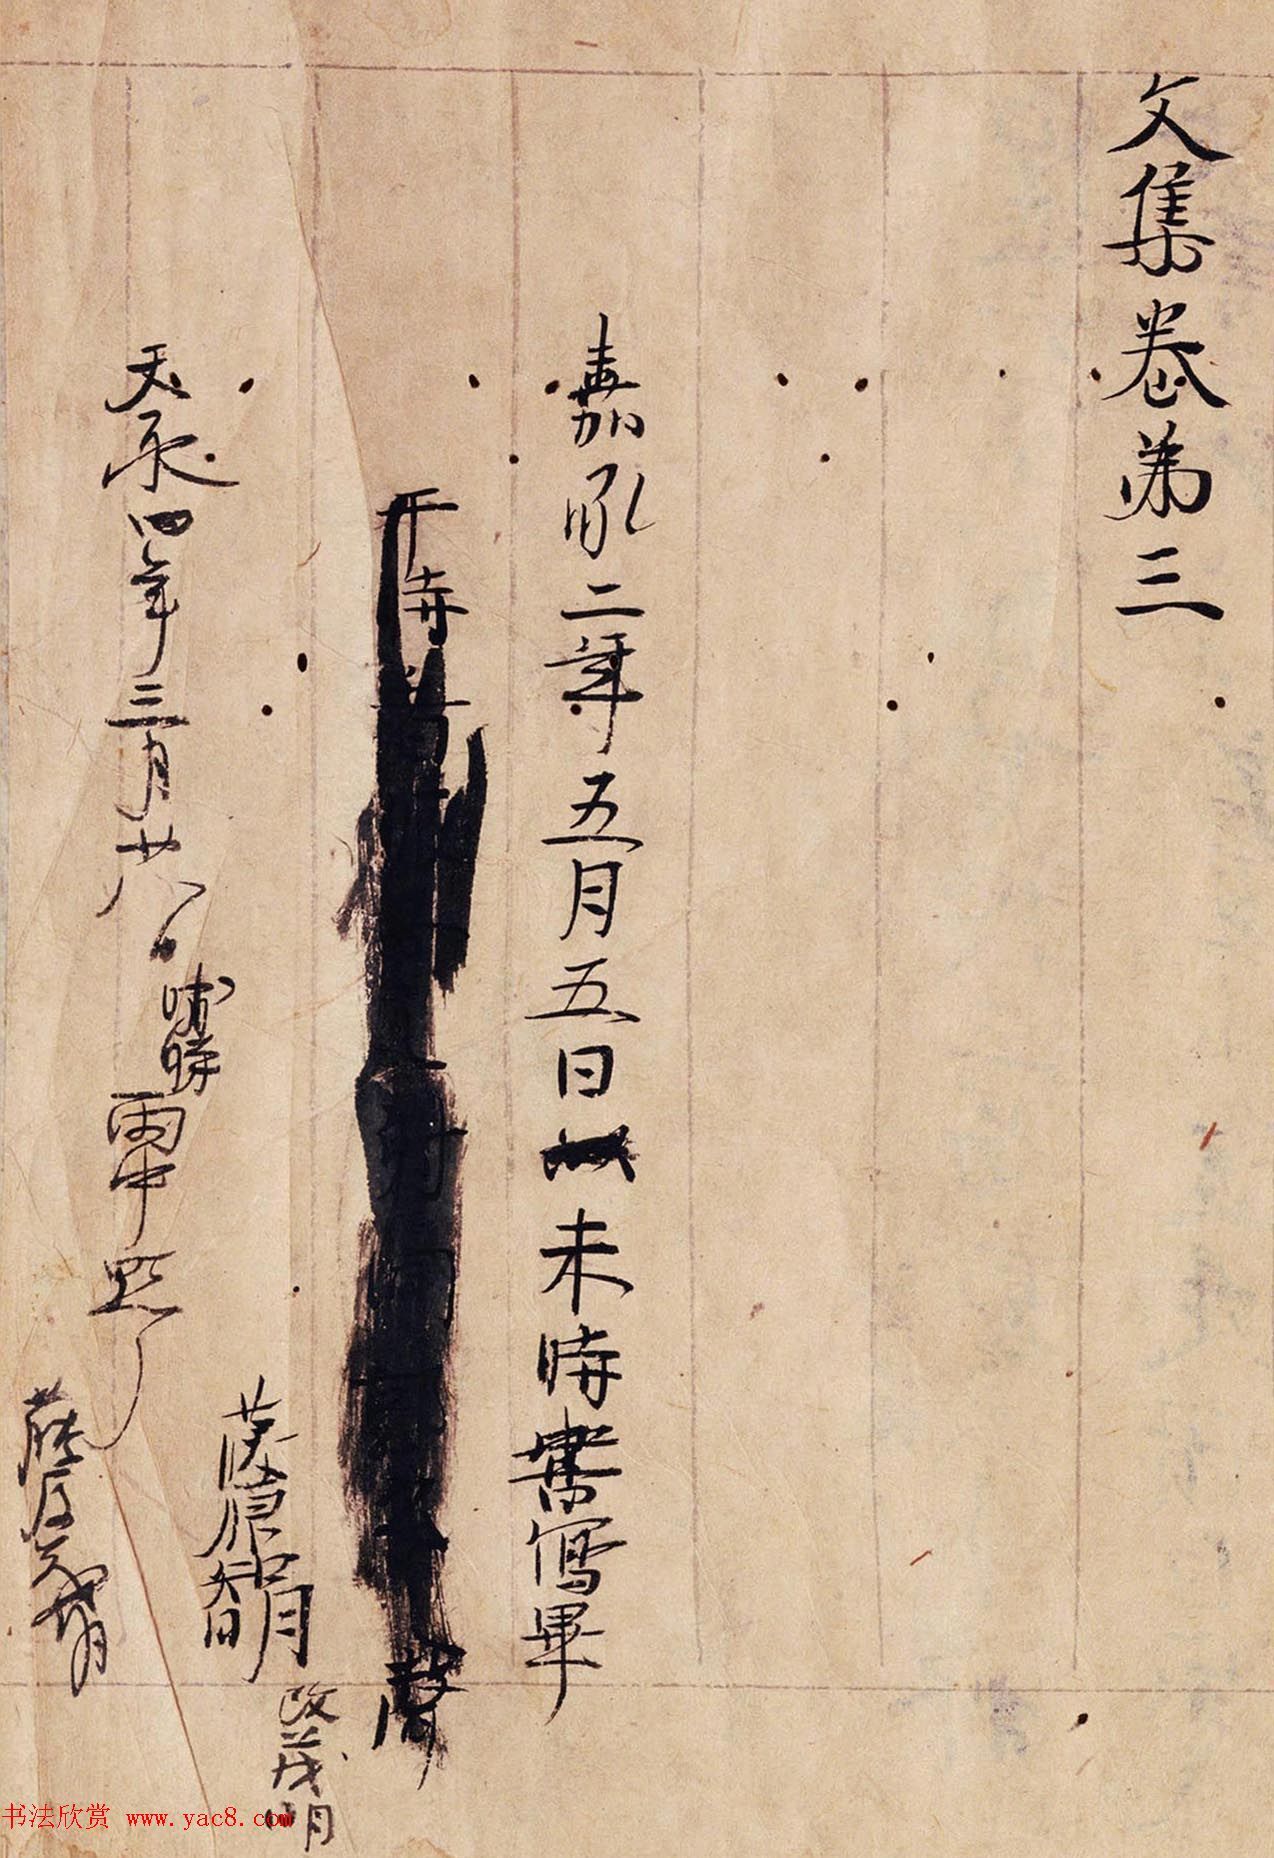 文集卷第三
嘉承二年五月五日未時書寫畢
于時
藤原知明
改茂明
天永四年三月廿八日
晡時
雨中點了
藤原茂明
书法欣赏 www.yac8.com